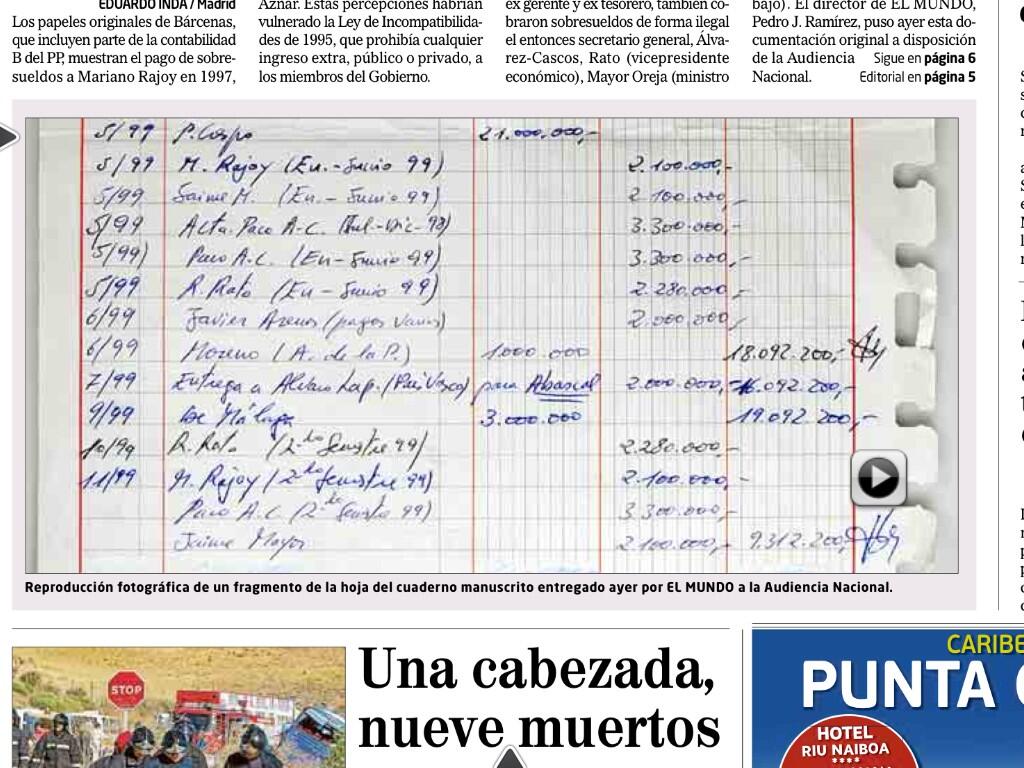 EDUARDO INDA / Madrid
Los papeles originales de Bárcenas,
que incluyen parte de la contabilidad
B del PP, muestran el pago de sobre-
sueldos a Mariano Rajoy en 1997,
Aznar. Estas percepciones habrían
vulnerado la Ley de Incompatibilida-
des de 1995, que prohibía cualquier
ingreso extra, público o privado, a
los miembros del Gobierno.
ex gerente y ex tesorero, también co-
braron sobresueldos de forma ilegal
el entonces secretario general, Álva-
rez-Cascos, Rato (vicepresidente
económico), Mayor Oreja (ministro
bajo). El director de EL MUNDO,
Pedro J. Ramírez, puso ayer esta do-
cumentación original a disposición
de la Audiencia Sigue en página 6
Nacional. Editorial en página 5
5/99 P. Crespo 21.000.000,-
5/99 M. Rajoy (En.-Junio 99) 2.100.000,-
5/99 Jaime M. (En.-Junio 99) 2.100.000,-
5/99 Acta. Paco A-C. (Jul-Dic-98) 3.300.000,-
5/99) Paco A.C. (En-Junio 99) 3.300.000,-
5/99 R. Rato (En-Junio 99) 2.280.000,-
6/99 Javier Arenas (pagos varios) 2.000.000,-
6/99 Moreno (A. de la P.) 1.000.000 18.092.200,-
7/99 Entrega a Alvaro Lap. (Pais Vasco) para Abascal 2.000.000,- 16.092.200,-
9/99 De Málaga 3.000.000 19.092.200,-
10/99 R. Rato (2do Semestre 99) 2.280.000,-
11/99 M. Rajoy (2do Semestre 99) 2.100.000,-
Paco A.C. (2do Semestre 99) 3.300.000,-
Jaime Mayor 2.100.000,- 9.312.200,-
Reproducción fotográfica de un fragmento de la hoja del cuaderno manuscrito entregado ayer por EL MUNDO a la Audiencia Nacional.
STOP
Una cabezada,
nueve muertos
CARIBE
PUNTA
HOTEL
RIU NAIBOA
****